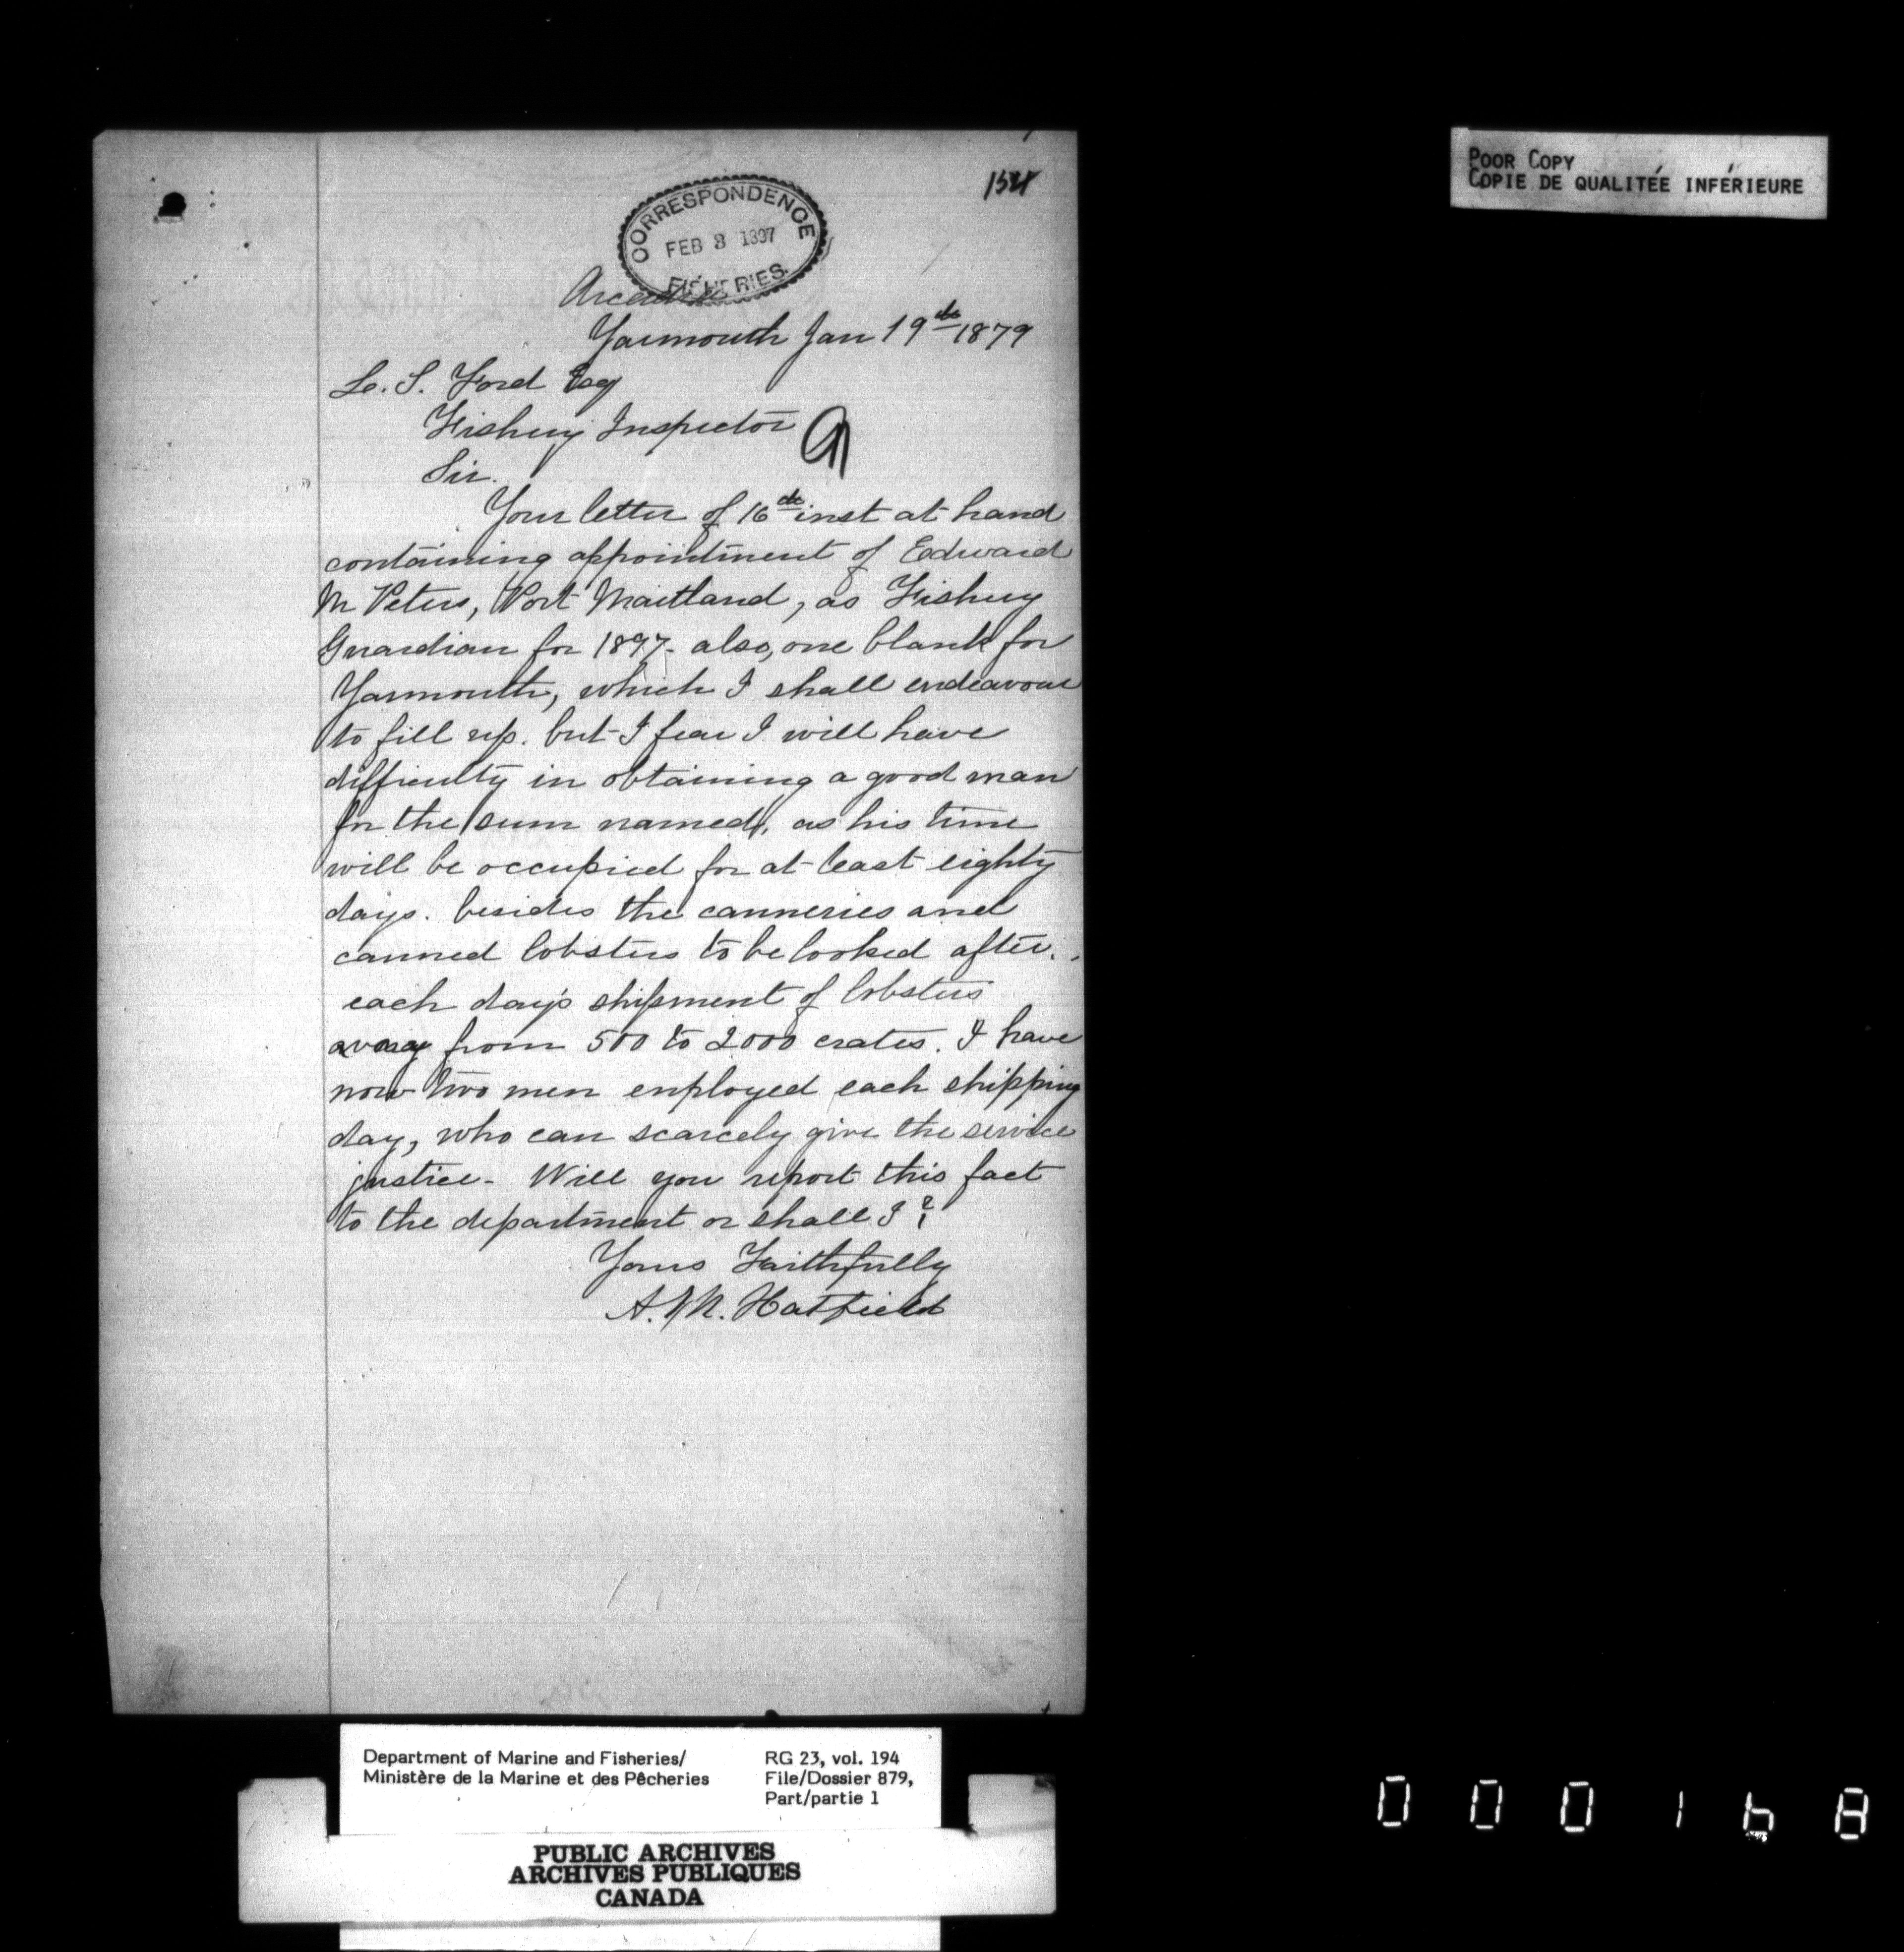 154
CORRESPONDENCE
FEB 8 1897
FISHERIES
POOR COPY
COPIE DE QUALITÉE INFÉRIEURE
Arcadia
Yarmouth Jan 19th 1879
L. S. Ford Esq
Fishery Inspector
Sir.
Your letter of 16th inst at hand
containing appointment of Edward
M Peters, Port Maitland, as Fishery
Guardian for 1897. also, one blank for
Yarmouth, which I shall endeavour
to fill up. but I fear I will have
difficulty in obtaining a good man
for the sum named, as his time
will be occupied for at least eighty
days. besides the canneries and
canned lobsters to be looked after.
each day's shipment of lobsters
from 500 to 2000 crates. I have
now two men employed each shipping
day, who can scarcely give the service
justice - Will you report this fact
to the department or shall I?
Yours Faithfully
A. M. Hatfield
Department of Marine and Fisheries/
Ministère de la Marine et des Pêcheries
RG 23, vol. 194
File/Dossier 879,
Part/partie 1
PUBLIC ARCHIVES
ARCHIVES PUBLIQUES
CANADA
000168